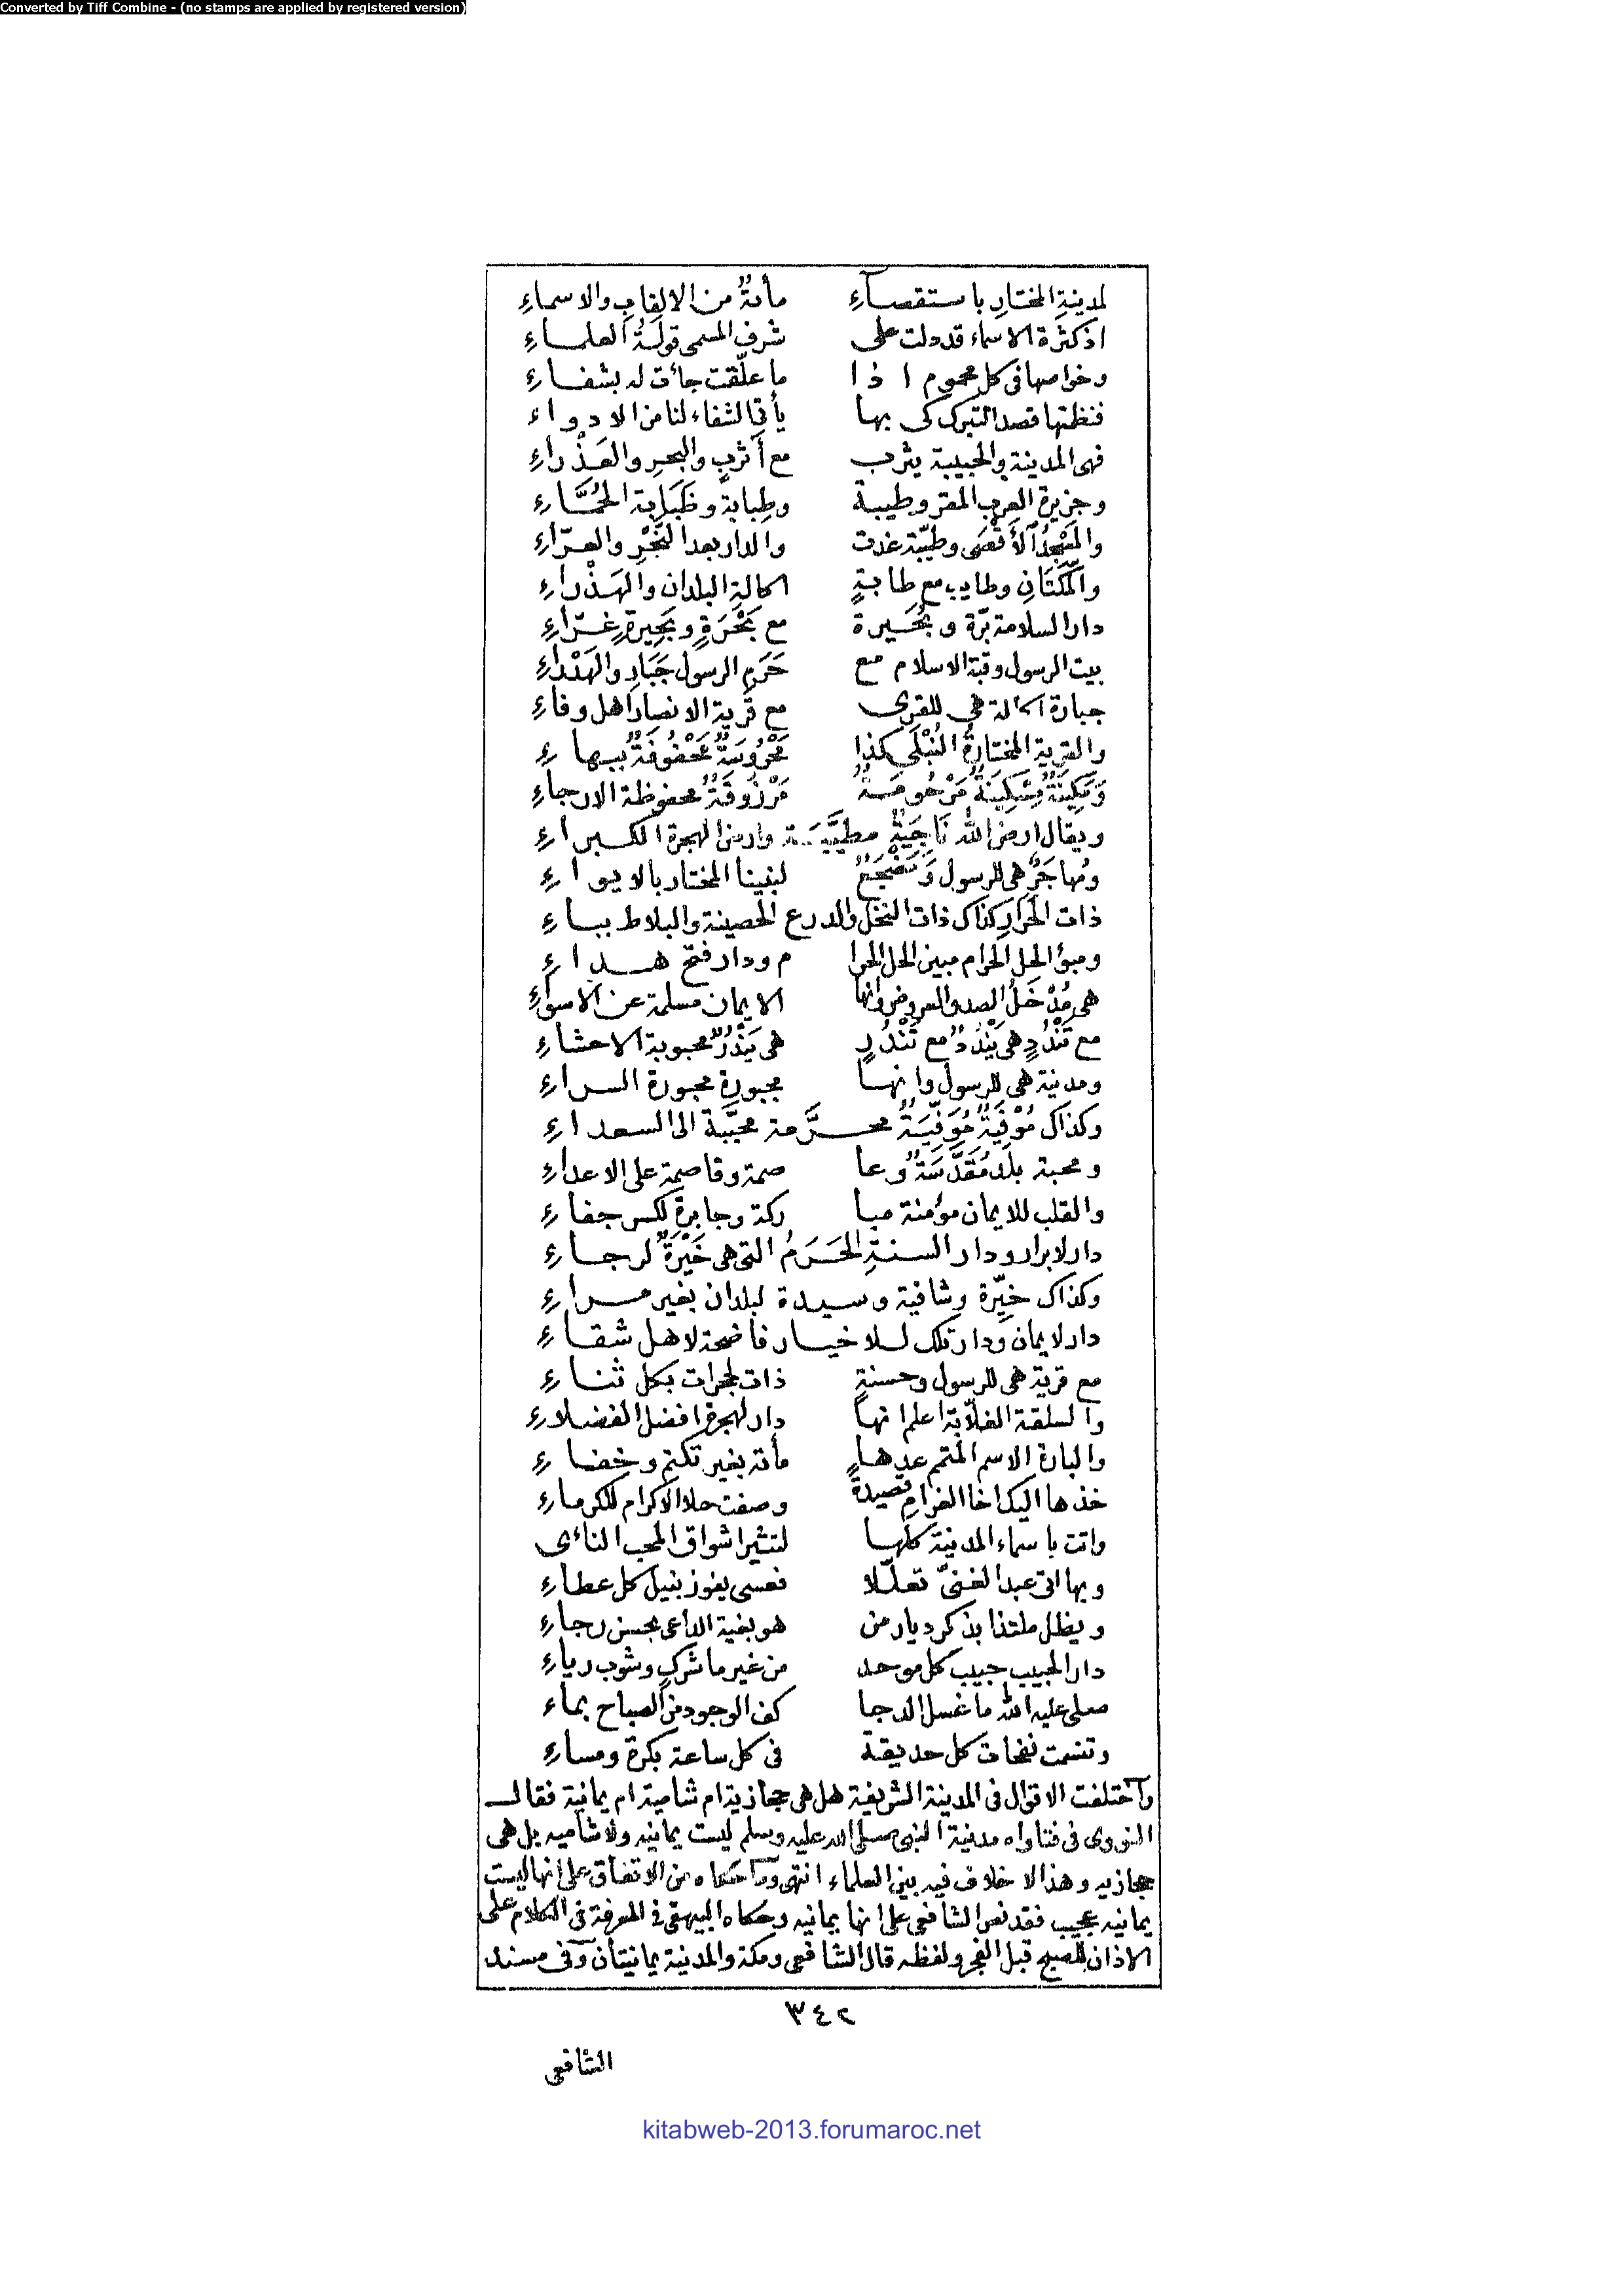 Converted by Tiff Combine - (no stamps are applied by registered version)
لمدينةِ المختارِ باستقصآءِ مأىةٌ من الالقابِ والاسماءِ
اذ كثرة الاسماء قد دلت على شرف المسمى قولةُ العلماءِ
وخواصها فى كل محموم اذا ما علّقت جاءت له بشفاءِ
فنظمتها قصد التبرك كى بها يأتى الشفاء لنا من الادواء
فهى المدينة والحبيبة يثرب مع أَثربٍ والبحرِ والعَذْراءِ
وجزيرة العرب المقر وطيبة وطِبابةٌ وظَبَابة الحُصَّارِ
والمَسْجِدُ الأَقْصَى وطيّبة غدت والدار بعد النَّحْرِ والعرّاءِ
والمَكَّتَانِ وطايب مع طابةٍ اكالةِ البلدان والهَذْراءِ
دار السلامة بَرّة وبُحَيرة مع بَحْرَةٍ وبَحِيرةٍ غرّاءِ
بيت الرسول وقبة الاسلام مع حَرَم الرسول جَبَارِ والهَذْراءِ
جبارة اكالة هى للقرى مع قرية الانصار اهل وفاءِ
والقرية المختارةُ المُثْلَى كذا مَحْرُوسَةٌ مَحْفُوفَةٌ ببهاءِ
وسَكِينَةٌ مِسْكِينَةٌ مَرْحُومَةٌ مَرْزُوقَةٌ محفوظة الارجاءِ
ويقال ارض الله نَاجِيَةٌ مطيَّبَة وارض الهجرة الكبراءِ
ومُهاجَرٌ هى للرسول وَمَضْجَعٌ لنبينا المختار بالايواءِ
ذات الحَرارِ كذاك ذات النخل والدرع الحصينة والبلاط بباءِ
ومبوّ الحل الحرام مبين الحل الحرا م ودار فتح هداءِ
هى مُدْخَلُ الصدق العروض وانها الايمان مسلمة عن الاسوآءِ
مع تَنْدَدٍ هى يَنْدَدٌ مع تَنْدَرٍ هى يَنْدَرٌ محبوبة الاحشاءِ
ومدينة هى للرسول وانها مجبورة محبورة السراءِ
وكذاك مُوْفِيَةٌ مُوَفِّيَةٌ محرَّمة محبَّبة الى السعداءِ
ومحبة بلد مُقَدَّسَةٌ وعا صمة وقاصمة على الاعداءِ
والقلب للايمان مؤمنة مبا ركة وجابرة لكسر جفاءِ
دار لابرار ودار السنةِ الحَرَمُ التى هى خَيْرَةٌ لرجاءِ
وكذاك خيِّرة وشافية وسيدة لبلدان بغير مراءِ
دار لايمان ودار تلك للاخيار فاضحة لاهل شقاءِ
مع قرية هى للرسول وحسنةٍ ذات لحجرات بكل ثناءِ
والسلقة الغلّابة اعلم انها دار لهجرة افضل الفضلاءِ
والبارة الاسم المتمم عدها مأىة بغير تكتم وخفاءِ
خذها اليك اخا الغرام قصيدةً وصفت حلا الاكرام للكرماءِ
واتت باسماء المدينة كلها لتثير اشواق المحب النائى
وبها اتى عبد الغنىّ تعلّلا فعسى يفوز بنيل كل عطاءِ
ويظل ملتذا بذكر ديار من هو بغية الداعى بحسن رجاءِ
دار الحبيب حبيب كل موحد من غير ما شركٍ وشوب رياءِ
صلى عليه الله ما غسل الدجا كف الوجود من الصباح بماء
وتنسمت نفحات كل حديقة فى كل ساعة بكرة ومساءِ
وآختلفت الاقوال فى المدينة الشريفة هل هى حجازية ام شامية ام يمانية فقال
النووى فى فتاواه مدينة النبى صلى الله عليه وسلم ليست يمانيه ولا شاميه بل هى
حجازيه وهذا لا خلاف فيه بين العلماء انتهى وما حكاه من الاتفاق على انها ليست
يمانيه عجيب فقد نص الشافعى على انها يمانيه وحكاه البيهقى فى المعرفة فى الكلام على
الاذان للصبح قبل الفجر ولفظه قال الشافعى ومكة والمدينة يمانيتان وفى مسند
٣٤٢
الشافعى
kitabweb-2013.forumaroc.net